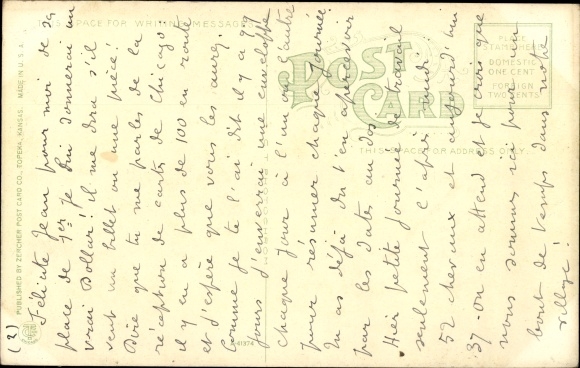 (2)
Félicite Jean pour moi de sa
place de 1er je lui donnerai un
vrai Dollar! il me dira s'il
veut un billet ou une pièce!
que tu me parles de la
réception de cartes de Chicago
il y en a plus de 100 en route
et j'espère que vous les aurez.
Comme je te l'ai dit il y a 99
jours j'enverrai une enveloppe
chaque jour à l'un ou l'autre
pour résumer chaque journée.
Tu as déjà dû t'en apercevoir
par les dates au dos.
Hier petite journée de travail
seulement l'après midi:
52 chevaux et aujourd'hui
37. on en attend et je crois que
nous sommes ici pour un
bout de temps dans notre
village!
SPACE FOR WRITING MESSAGES
POST CARD
THIS SPACE FOR ADDRESS ONLY
PLACE STAMP HERE
DOMESTIC
ONE CENT
FOREIGN
TWO CENTS
PUBLISHED BY ZERCHER POST CARD CO., TOPEKA, KANSAS. MADE IN U.S.A.